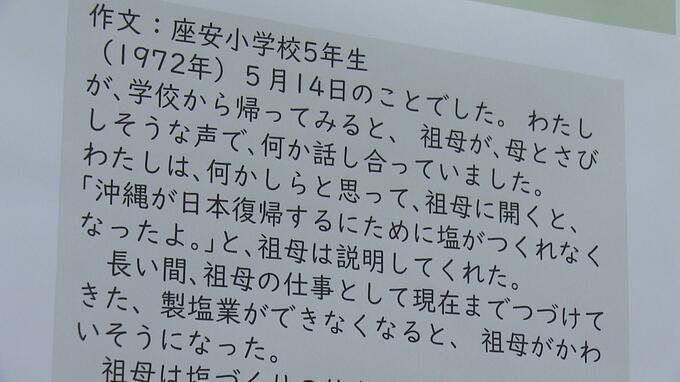 作文：座安小学校5年生
（1972年）5月14日のことでした。わたし
が、学校から帰ってみると、祖母が、母とさび
しそうな声で、何か話し合っていました。
わたしは、何かしらと思って、祖母に開くと、
「沖縄が日本復帰するにために塩がつくれなく
なったよ。」と、祖母は説明してくれた。
長い間、祖母の仕事として現在までつづけて
きた、製塩業ができなくなると、祖母がかわ
いそうになった。
祖母は塩づくりの